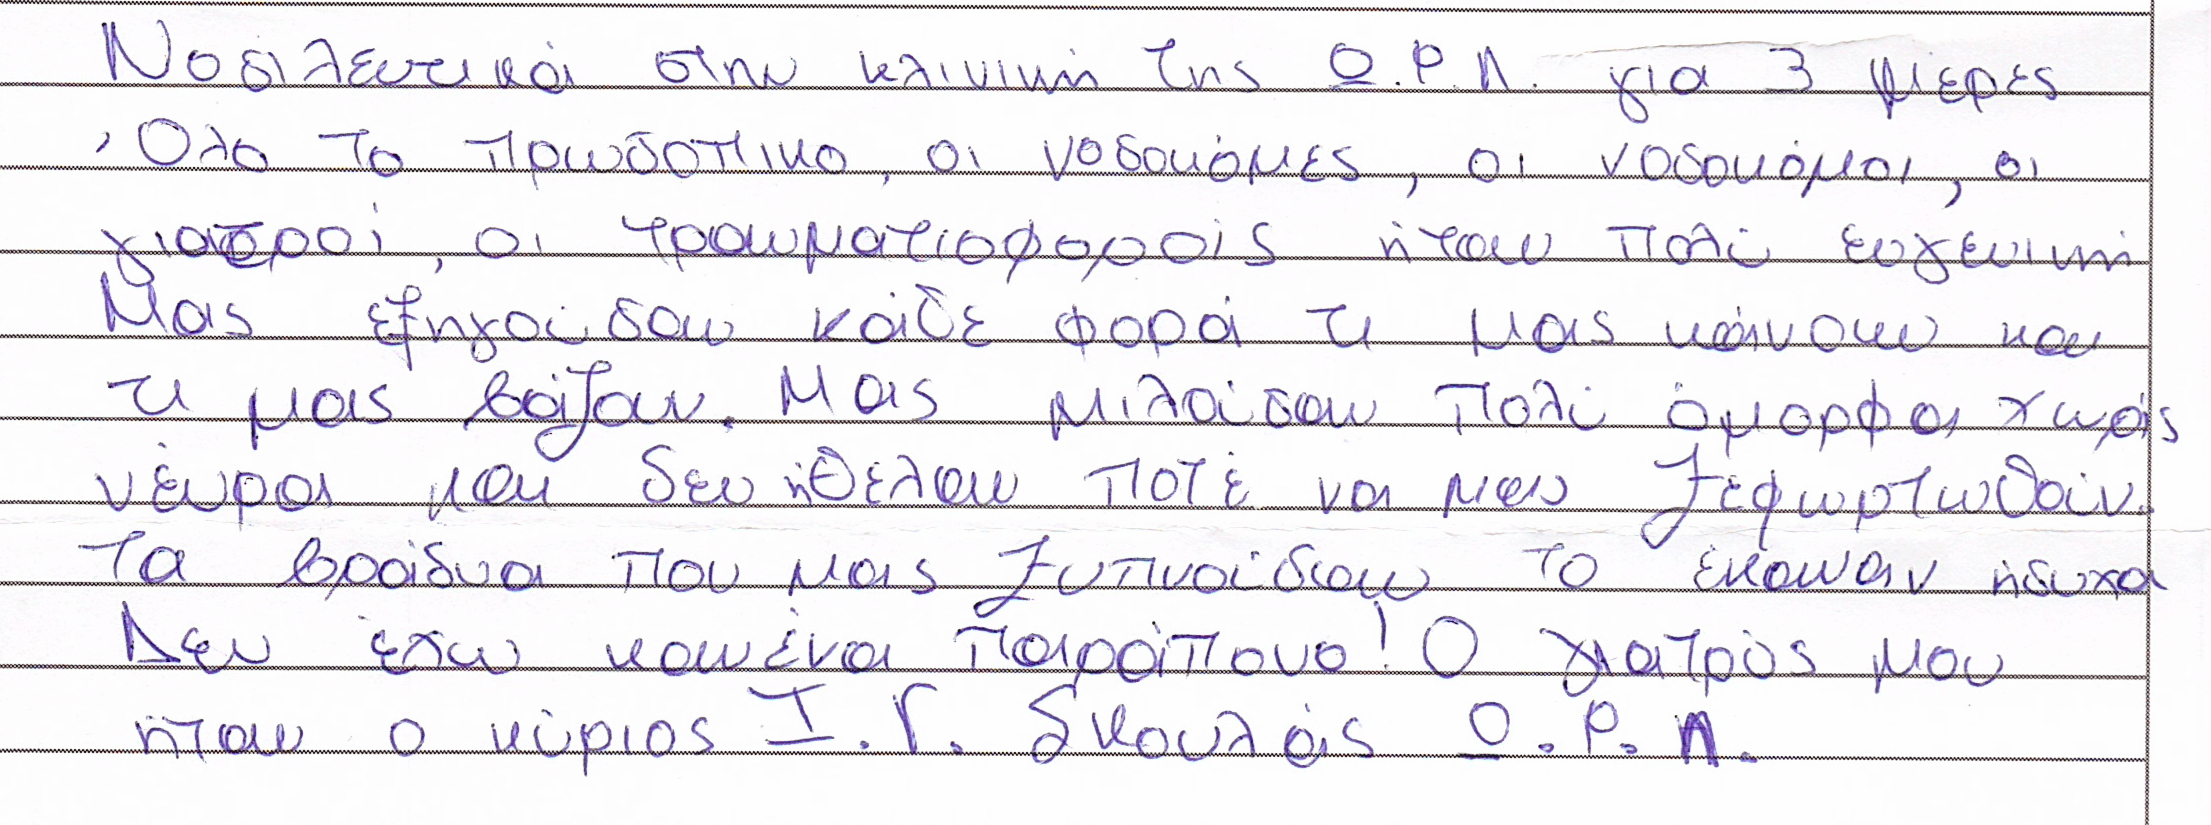 Νοσιλευτικά στην κλινική της Ω.Ρ.Λ. για 3 μέρες
Όλο το πρωσοπικο, οι νοσοκόμες, οι νοσοκόμοι, οι
γιατροί, οι τραωματισφοροίς ήταν πολύ ευγενική
Μας εξηγούσαν κάθε φορά τι μας κάνουν και
τι μας βάζαν. Μας μιλούσαν πολύ όμορφα χωρίς
νέυρα και δεν ήθέλαν ποτέ να μαν ξεφωρτωθούν.
Τα βράδυα που μας ξυπνούσαν το έκαναν ήσυχα
Δεν έχω κανένα παράπονο! Ο γιατρός μου
ήταν ο κύριος Ι.Γ. Σκουλάς Ω.Ρ.Λ.